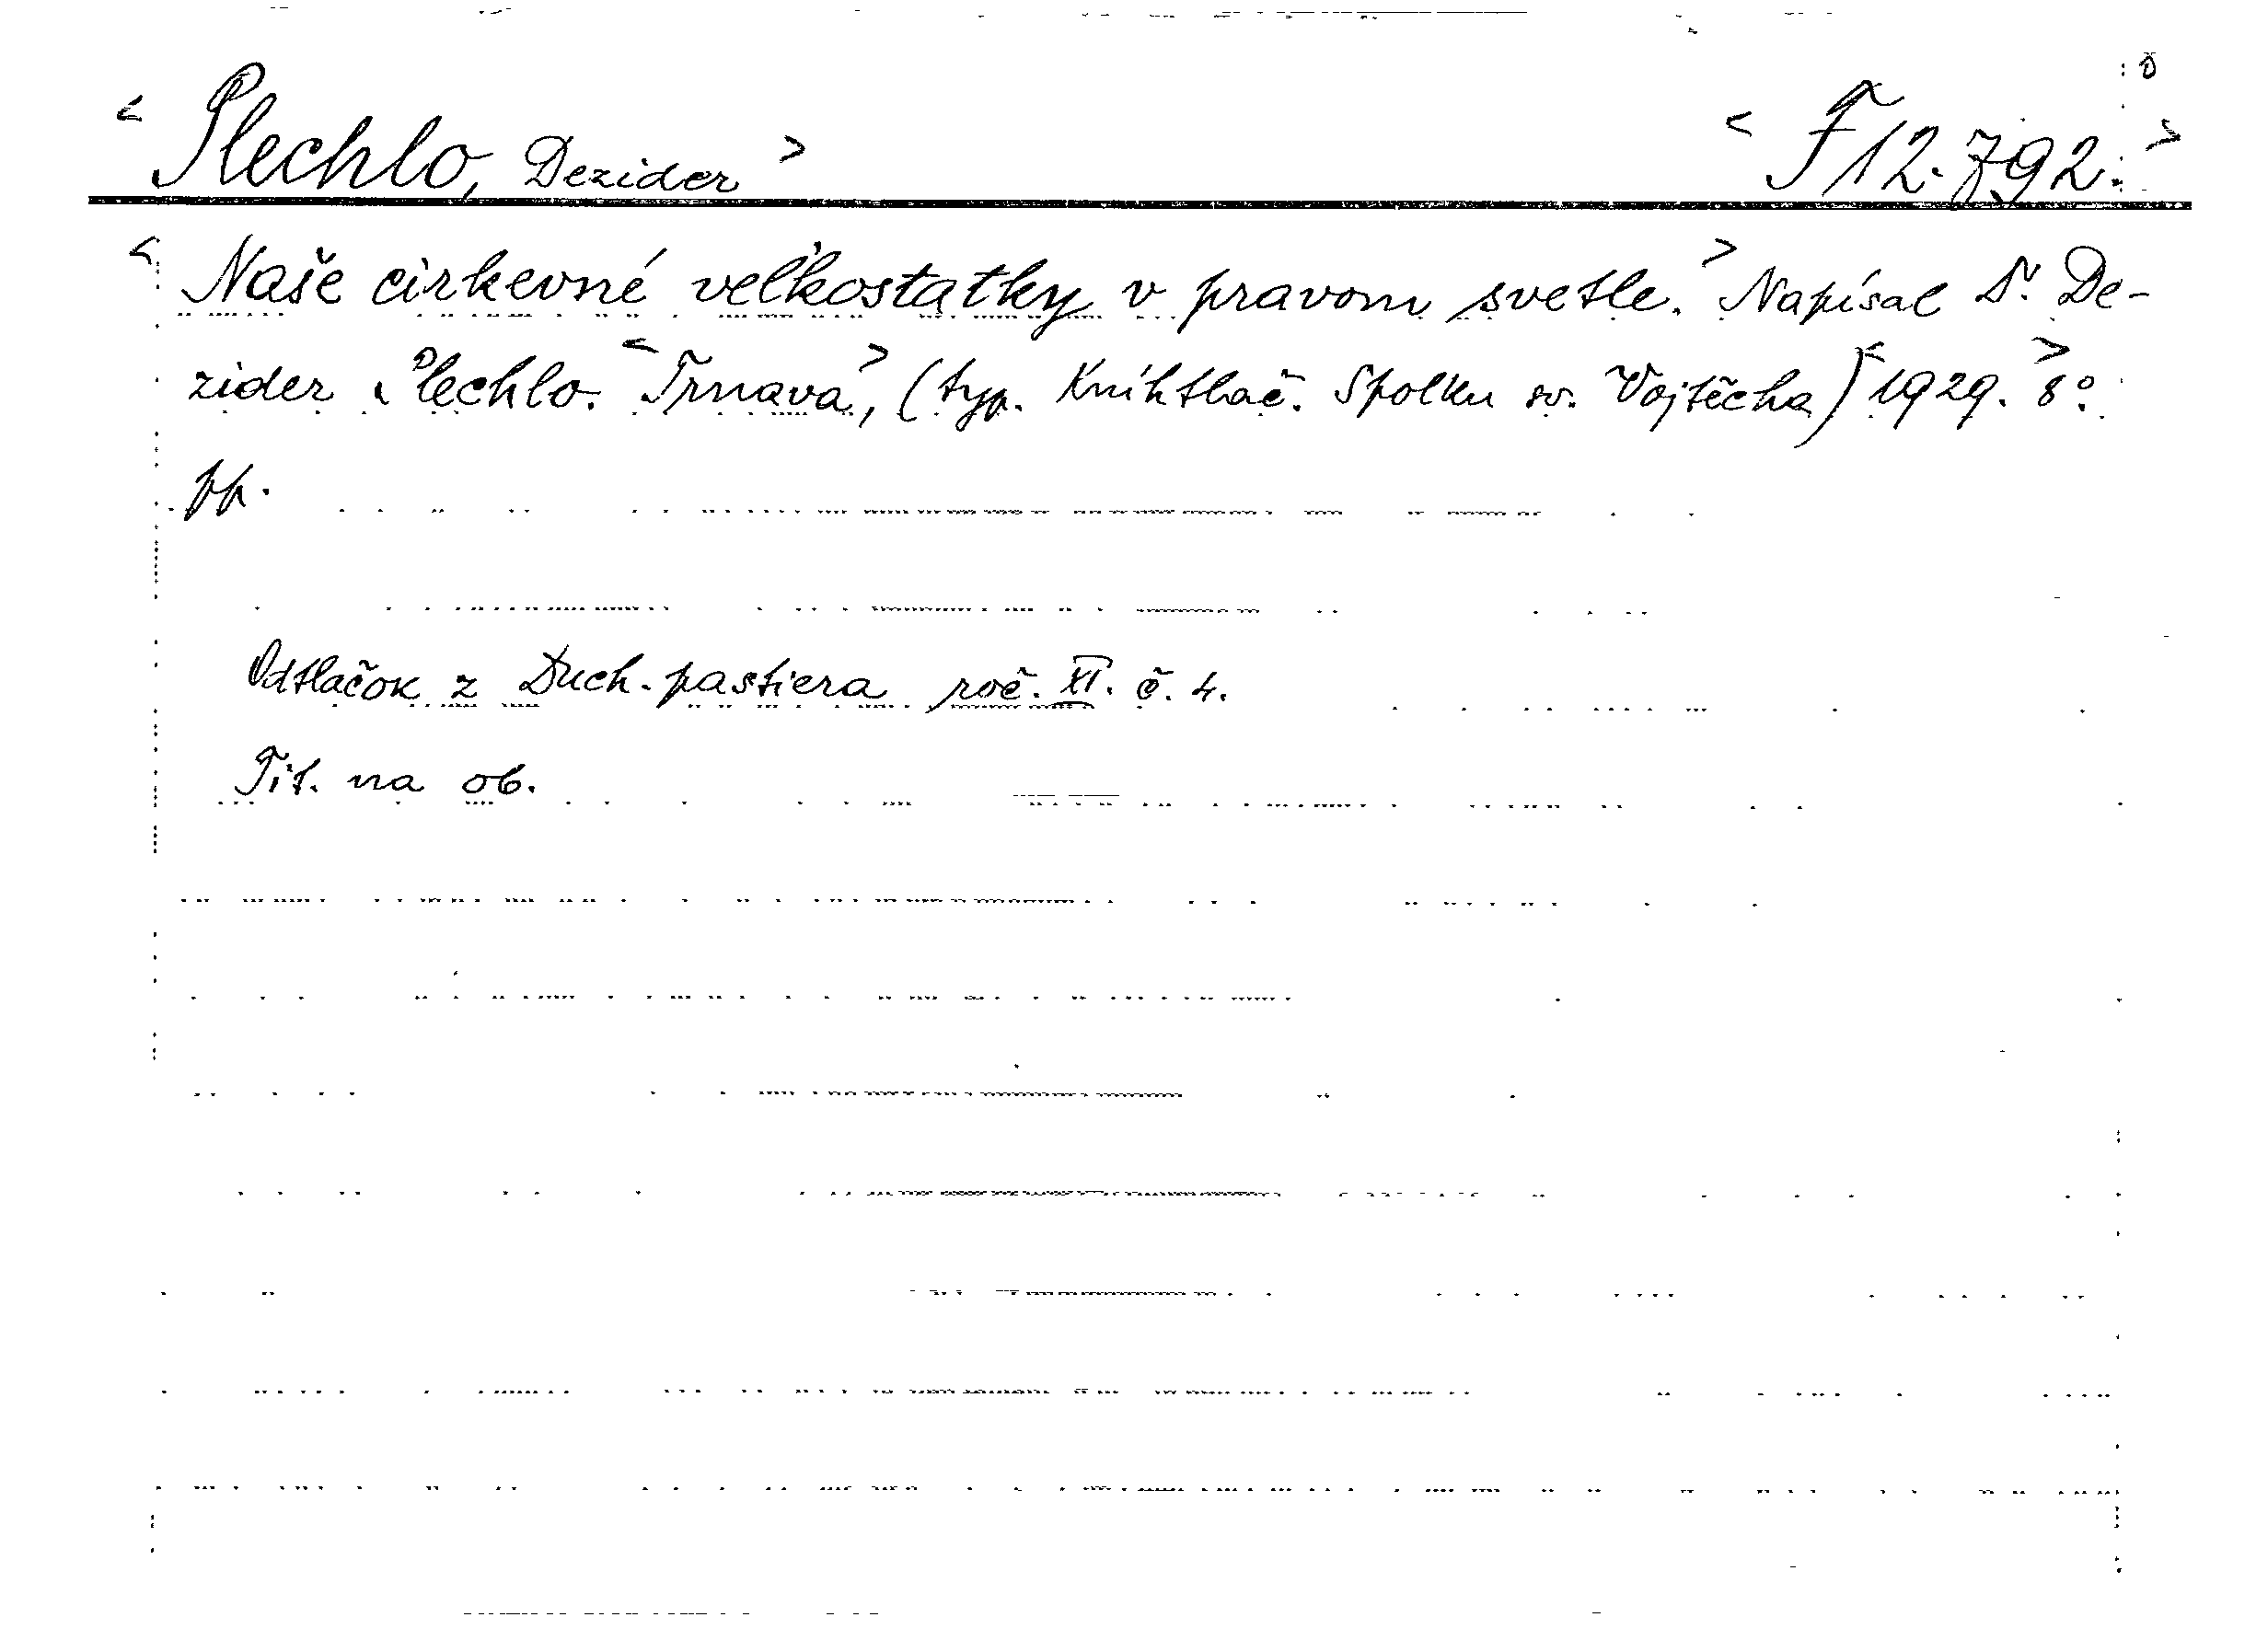 < Plechlo, Dezider > < F 12.792. >
< Naše cirkevné veľkostatky v pravom svetle. > Napísal Dr. De-
zider Plechlo. < Trnava >, (typ. Kníhtlač. Spolku sv. Vojtěcha) < 1929. > 8°.
pp.
Odtlačok z Duch. pastiera roč. XI. č. 4.
Tit. na ob.